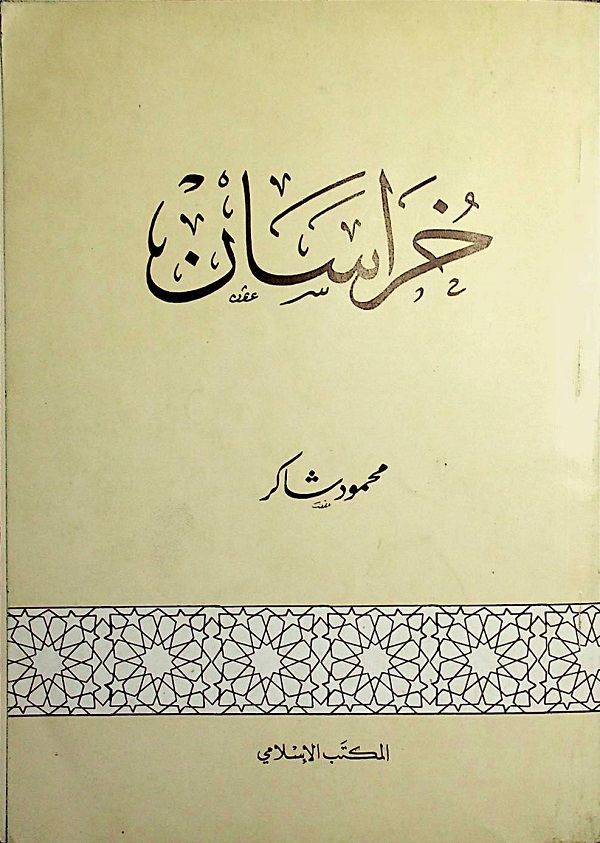 خُرَاسَان
محمود شاكر
المكتَب الإسْلامي